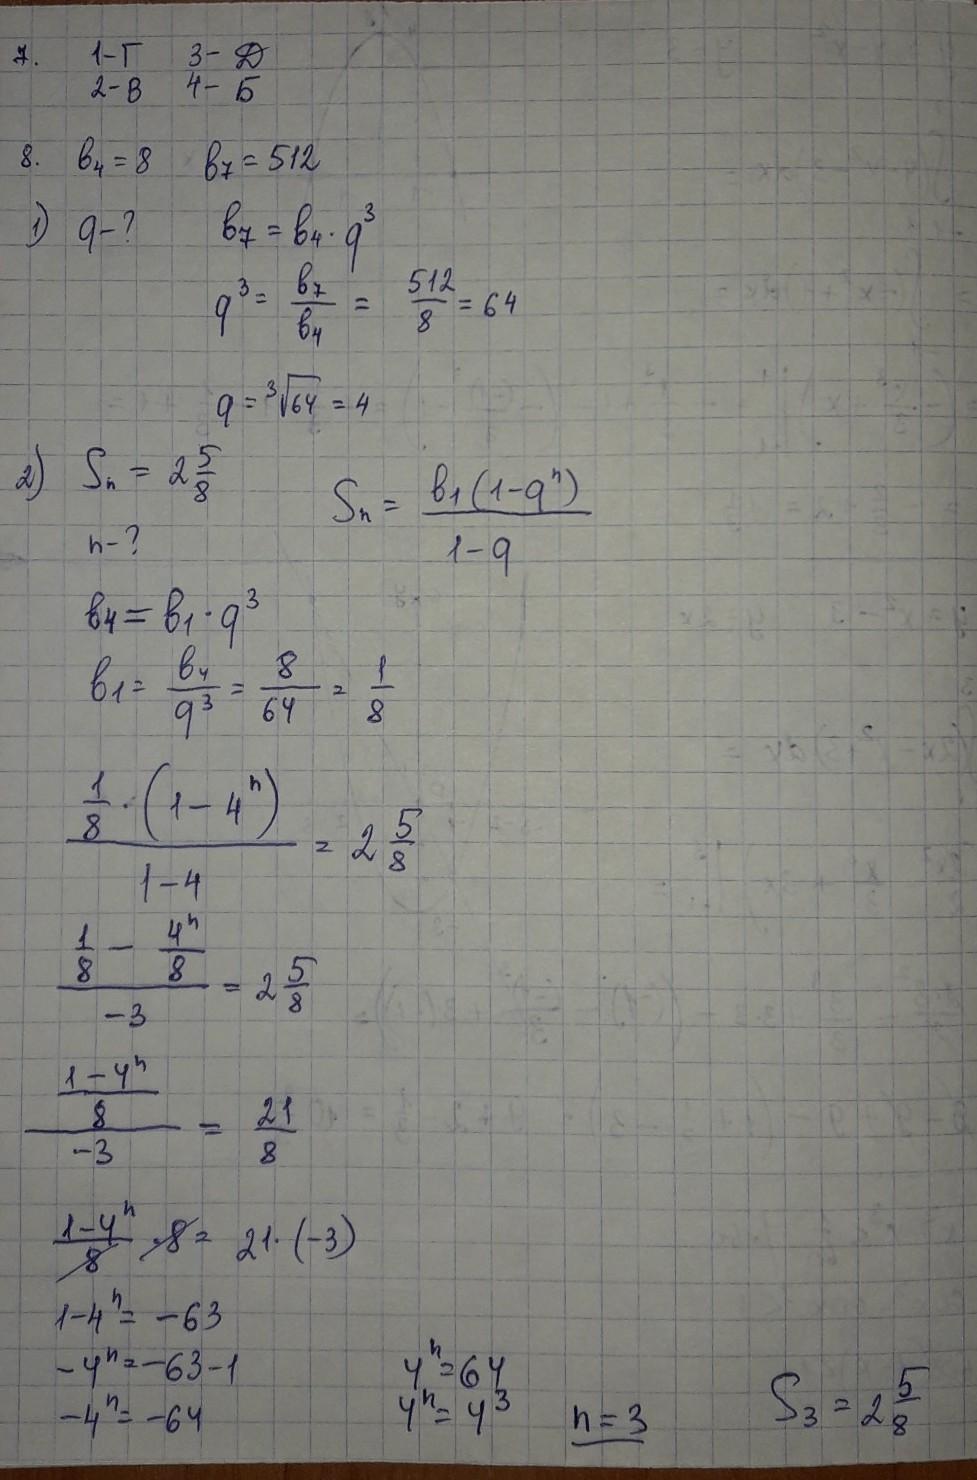 7. 1-Г 3- Д
2-В 4- Б
8. b₄ = 8 b₇ = 512
1) q-? b₇ = b₄ · q³
q³ = b₇/b₄ = 512/8 = 64
q = ³√64 = 4
2) Sₙ = 2 5/8 Sₙ = b₁(1-qⁿ)/(1-q)
n-?
b₄ = b₁ · q³
b₁ = b₄/q³ = 8/64 = 1/8
(1/8 · (1-4ⁿ))/(1-4) = 2 5/8
(1/8 - 4ⁿ/8)/(-3) = 2 5/8
((1-4ⁿ)/8)/(-3) = 21/8
(1-4ⁿ)/8 · 8 = 21 · (-3)
1-4ⁿ = -63
-4ⁿ = -63-1 4ⁿ = 64
-4ⁿ = -64 4ⁿ = 4³ n = 3 S₃ = 2 5/8